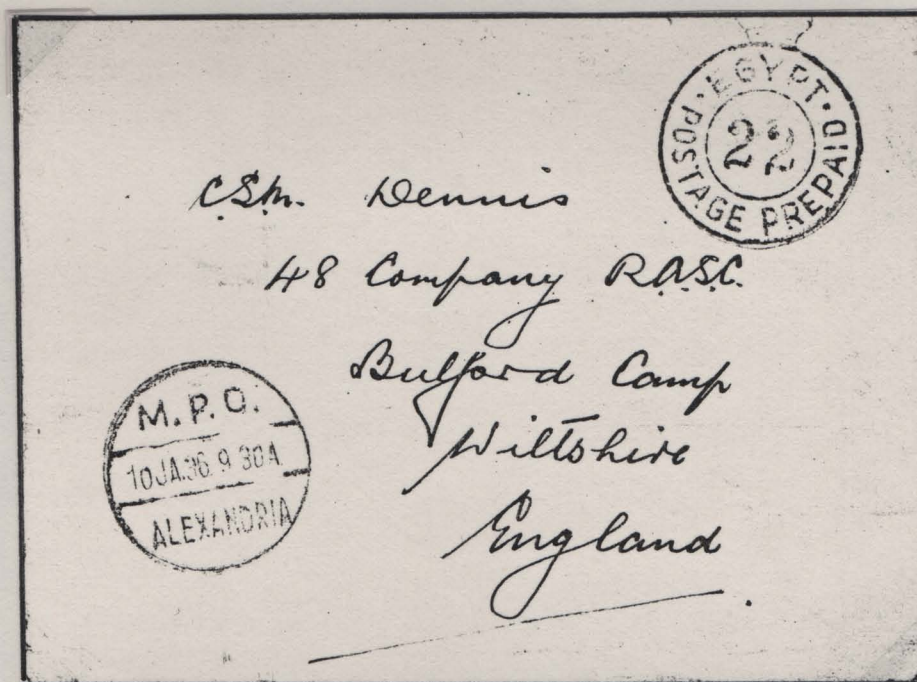 EGYPT
22
POSTAGE PREPAID
C.S.M. Dennis
48 Company R.A.S.C.
Bulford Camp
Wiltshire
England
M.P.O.
10 JA.36. 9 30A
ALEXANDRIA